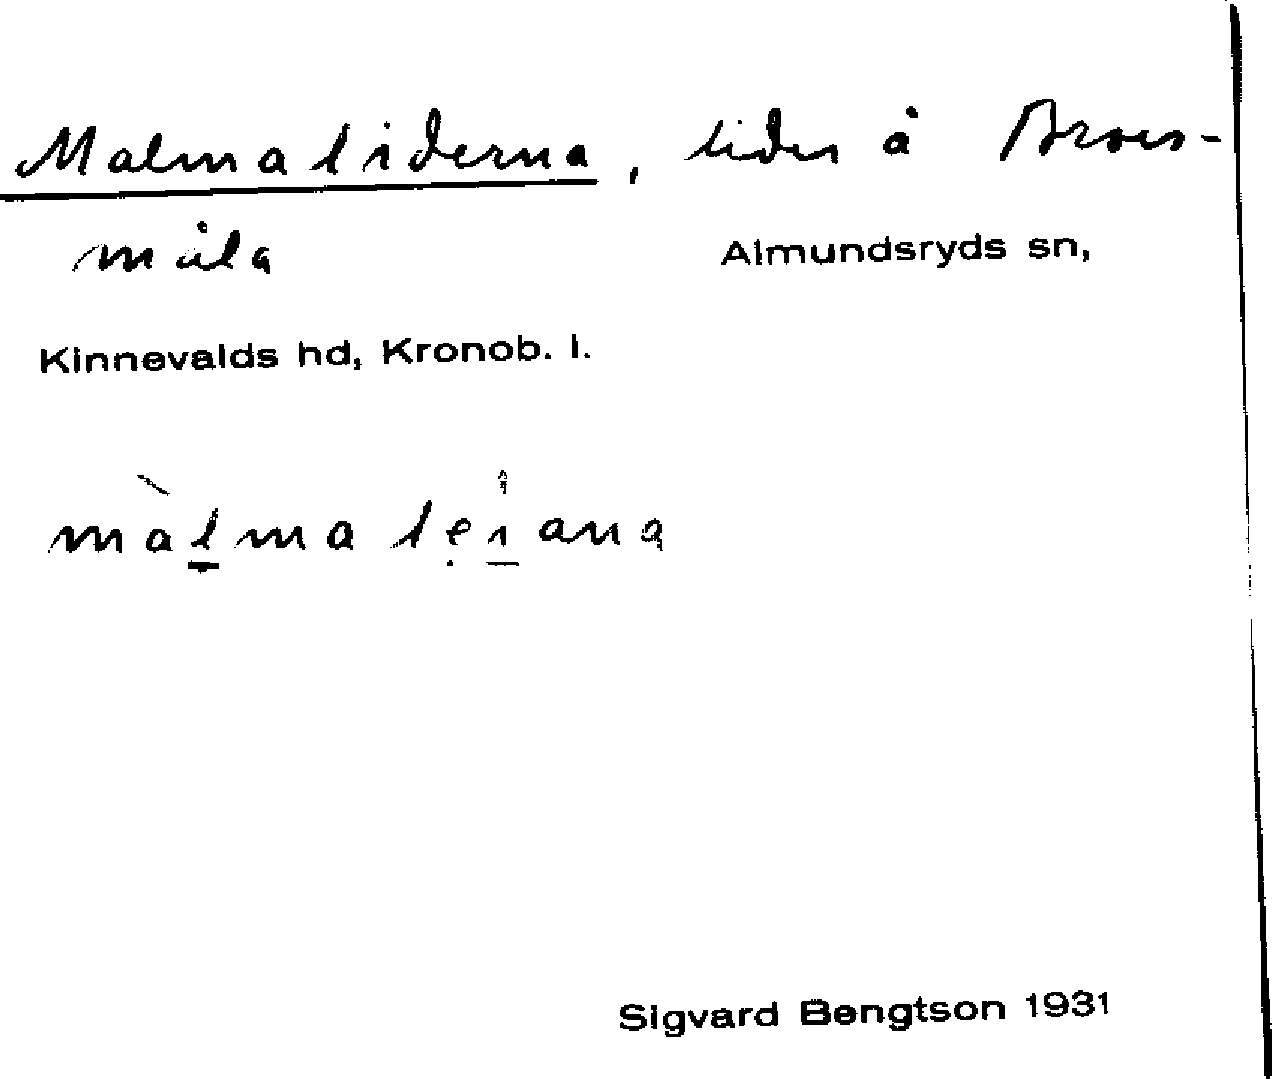 Malmaliderna, lider å Broes-
måla
Almundsryds sn,
Kinnevalds hd, Kronob. l.
màlma leiana
Sigvard Bengtson 1931